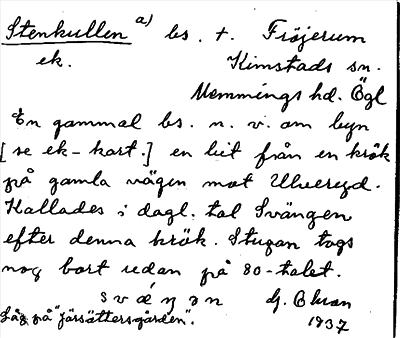 Stenkullen a) bs. t. Fröjerum
ek. Kimstads sn.
Memmings hd. Ögl
En gammal bs. n. v. om byn
[se ek-kart.] en bit från en krök
på gamla vägen mot Ulveryd.
Kallades i dagl. tal Svängen
efter denna krök. Stugan togs
nog bort redan på 80-talet.
svǽŋən G.
Låg på "Järsättersgården". 1937